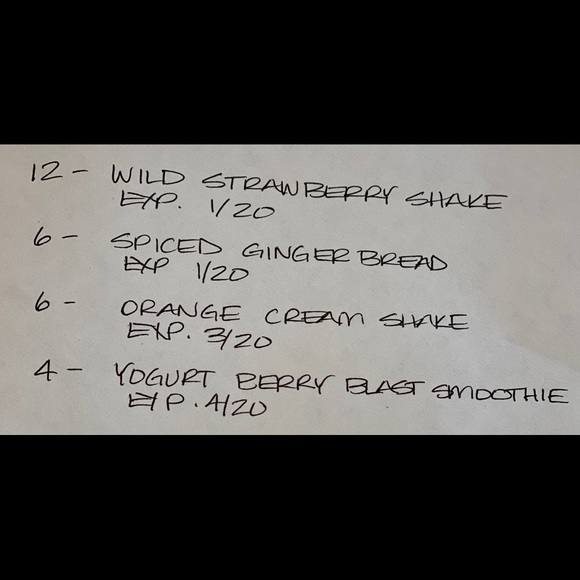 12 - WILD STRAWBERRY SHAKE
EXP. 1/20
6 - SPICED GINGERBREAD
EXP 1/20
6 - ORANGE CREAM SHAKE
EXP. 3/20
4 - YOGURT BERRY BLAST SMOOTHIE
EXP. 4/20